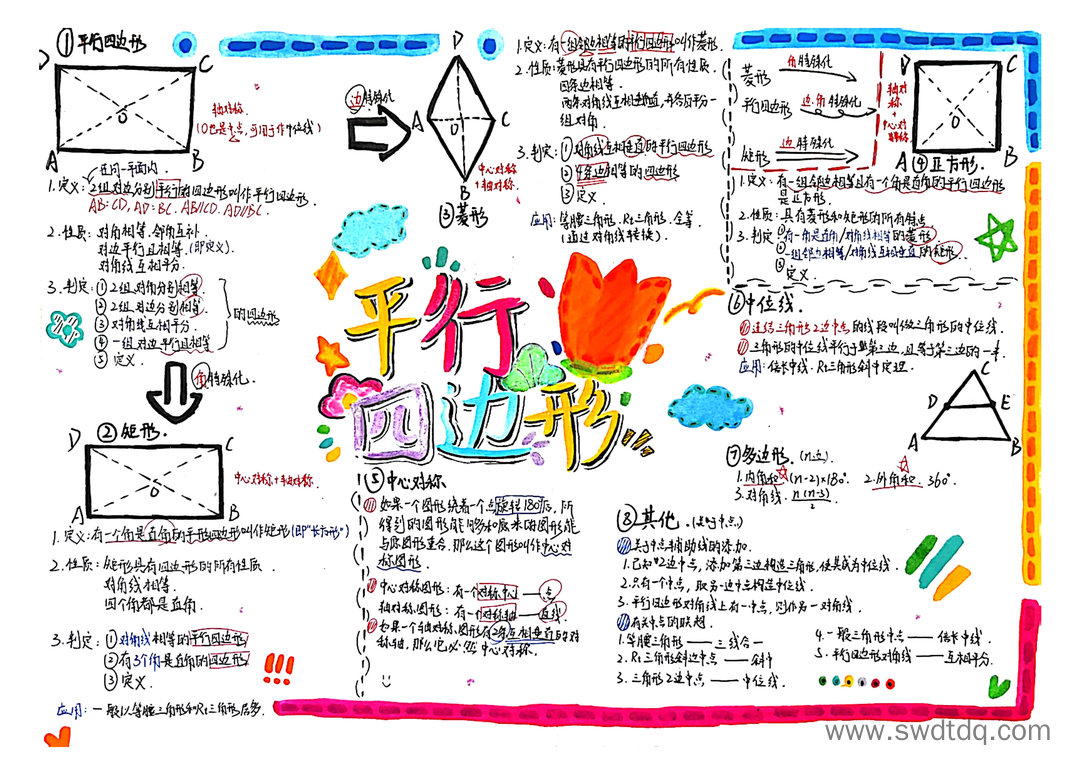 ①平行四边形
D
C
A
B
O
轴对称.
(O也是中点,可用于作中位线)
在同一平面内
1.定义:2组对边分别平行的四边形叫作平行四边形.
AB=CD, AD=BC. AB//CD. AD//BC.
2.性质:对角相等.邻角互补.
对边平行且相等.(即定义).
对角线互相平分.
3.判定:①2组对角分别相等.
②2组对边分别相等.
③对角线互相平分.
④一组对边平行且相等
⑤定义.
的四边形
角特殊化.
②矩形.
D
C
A
B
O
中心对称+轴对称.
1.定义:有一个角是直角的平行四边形叫作矩形(即"长方形")
2.性质:矩形具有四边形的所有性质.
对角线相等.
四个角都是直角.
3.判定:①对角线相等的平行四边形
②有3个角是直角的四边形
③定义.
应用:一般以等腰三角形和Rt三角形居多.
边特殊化
D
A
C
B
O
中心对称
+轴对称.
③菱形
1.定义:有一组邻边相等的平行四边形叫作菱形.
2.性质:菱形具有平行四边形的所有性质.
四条边相等.
两条对角线互相垂直,并各平分一
组对角.
3.判定:①对角线互相垂直的平行四边形
②4条边相等的四边形
③定义.
应用:等腰三角形.Rt三角形.全等.
(通过对角线转换).
平行
四边形
菱形 角特殊化
平行四边形 边.角特殊化
矩形 边特殊化
轴对称
+
中心对称
D
C
A
B
O
④正方形.
1.定义:有一组邻边相等且有一个角是直角的平行四边形
是正方形.
2.性质:具有菱形和矩形的所有特点
3.判定①有一角是直角/对角线相等的菱形
②一组邻边相等/对角线互相垂直的矩形.
③定义.
⑤中心对称
如果一个图形绕着一个点旋转180°后,所
得到的图形能够和原来的图形能
与原图形重合.那么这个图形叫作中心对
称图形.
中心对称图形:有一个对称中心——点
轴对称图形:有一个对称轴——直线.
如果一个轴对称图形有2条互相垂直的对
称轴,那么它必然中心对称.
⑥中位线
连结三角形2边中点的线段叫做三角形的中位线.
三角形的中位线平行于第三边,且等于第三边的一半.
应用:倍长中线.Rt三角形斜中定理.
C
D
E
A
B
⑦多边形.(n边)
1.内角和 (n-2)×180°. 2.外角和 360°.
3.对角线. n(n-3)/2
⑧其他.(是叫中点.)
关于中点辅助线的添加.
1.已知2边中点,添加第三边构造三角形,使其成为中位线.
2.只有一个中点,取另一边中点构造中位线.
3.平行四边形对角线上有一中点,则作另一对角线.
有关中点的联想.
1.等腰三角形——三线合一
2.Rt三角形斜边中点——斜中
3.三角形2边中点——中位线.
4.一般三角形中点——倍长中线.
5.平行四边形对角线——互相平分.
!!!
www.swdtdq.com